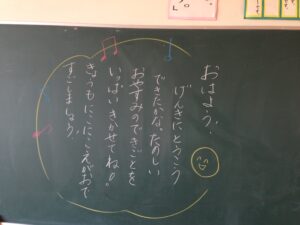 おはよう！
げんきにとうこう
できたかな。たのしい
おやすみのできごとを
いっぱいきかせてね！
きょうもにこにこえがおで
すごしましょう。